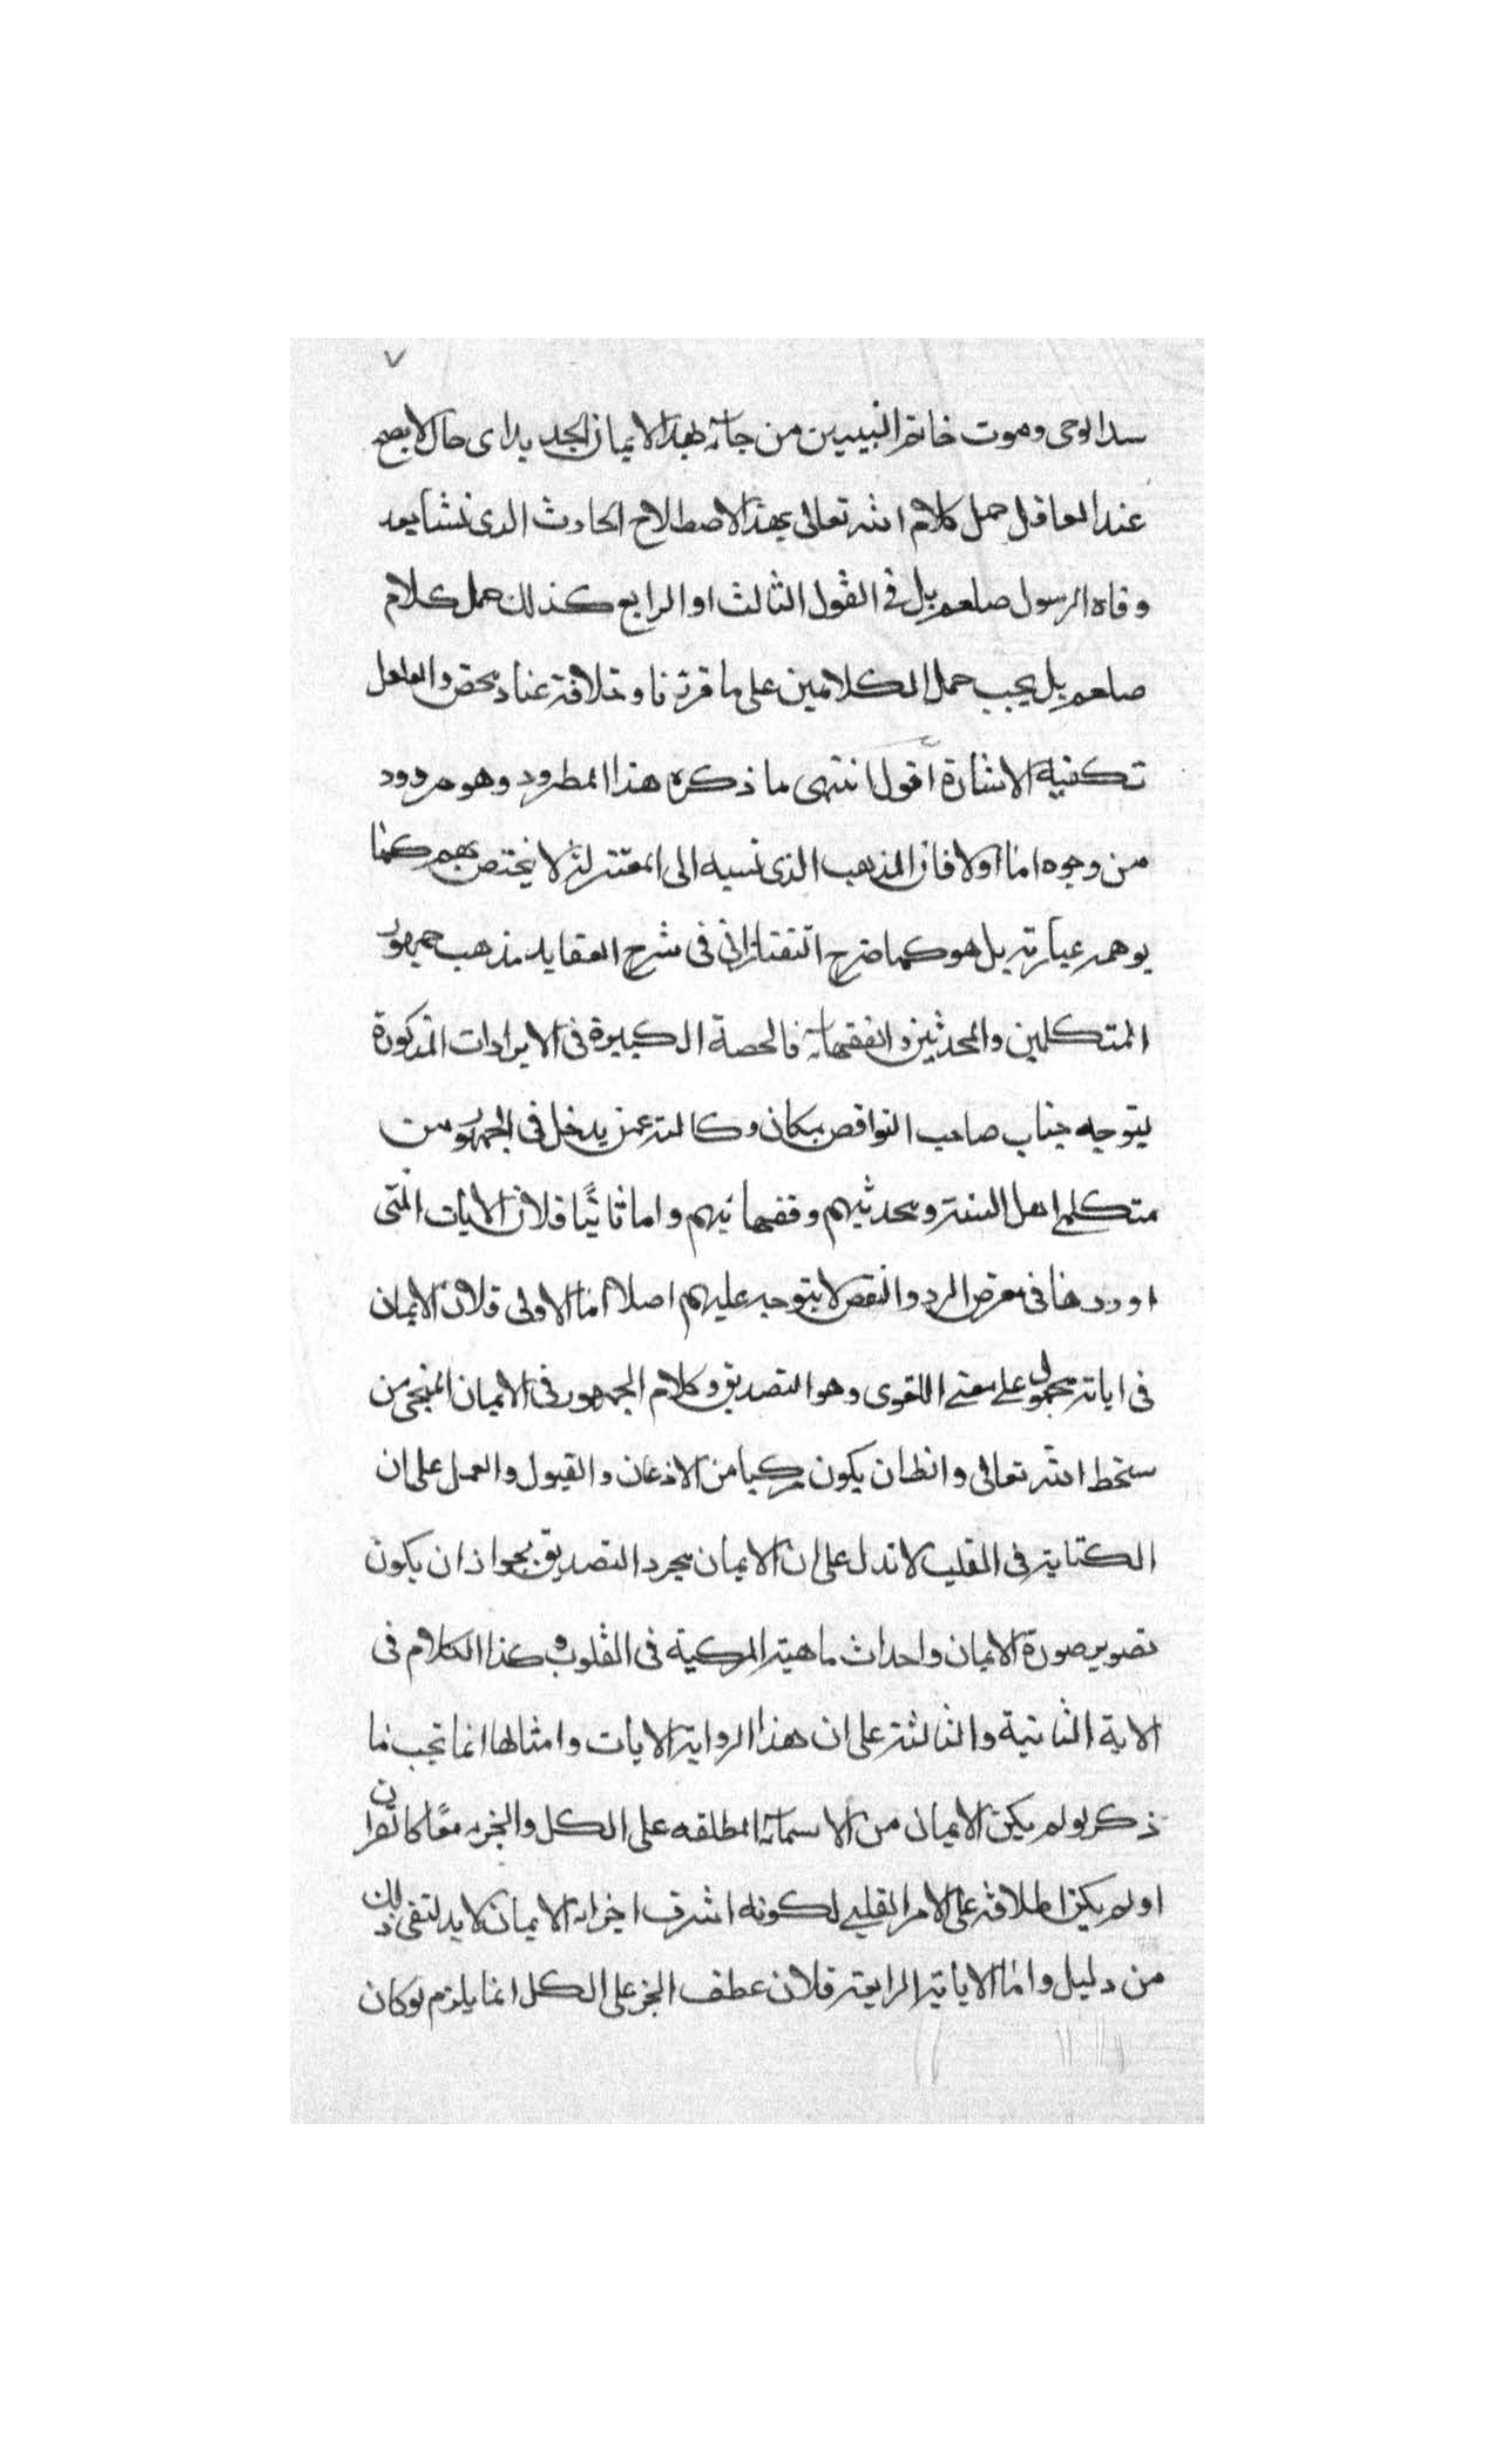 ٧
سد الوحى وموت خاتم النبيين من جاء بهذا الايمان الجديد اى حال لا يصح
عند العاقل حمل كلام الله تعالى بهذا الاصطلاح الحادث الذى نشأ بعد
وفاه الرسول صلعم بل فى القول الثالث او الرابع كذلك حمل كلام
صلعم بل يجب حمل الكلامين على ما قررنا وخلافه عناد محض والعاقل
تكفيه الاشارة اقول انتهى ما ذكره هذا المطرود وهو مردود
من وجوه اما اولا فان المذهب الذى نسبه الى المعتزلة لا يختص بهم كما
يوهمه عبارته بل هو كما صرح التفتازانى فى شرح العقايد مذهب جمهور
المتكلمين والمحدثين والفقهاء فالحصة الكبيرة فى الايرادات المذكورة
يتوجه جناب صاحب النواقص بكان وكالته عمن يدخل فى الجمهور من
متكلمى اهل السنة ومحدثيهم وفقهائهم واما ثانيًا فلان الايات التى
اوردها فى معرض الرد والنقص لا يتوجه عليهم اصلا اما الاولى فلان الايمان
فى اياته محمول على معنى اللغوى وهو التصديق وكلام الجمهور فى الايمان المنجى من
سخط الله تعالى وانظان يكون مركبا من الاذعان والقبول والعمل على ان
الكتابة فى القلب لا تدل على ان الايمان مجرد التصديق بجواز ان يكون
تصوير صورة الايمان واحداث ماهية المركبة فى القلوب وكذا الكلام فى
الاية الثانية والثالثة على ان هذا الرواية الايات وامثالها انما تجب بما
ذكر لو لم يكن الايمان من الاسماء المطلقه على الكل والجزء معًا كالقران
او لم يكن اطلاقه على الامر القلبى لكونه اشرف اجزاء الايمان لا بد لنفى ذلك
من دليل واما الاياتة الرابعة فلان عطف الجزء على الكل انما يلزم لو كان